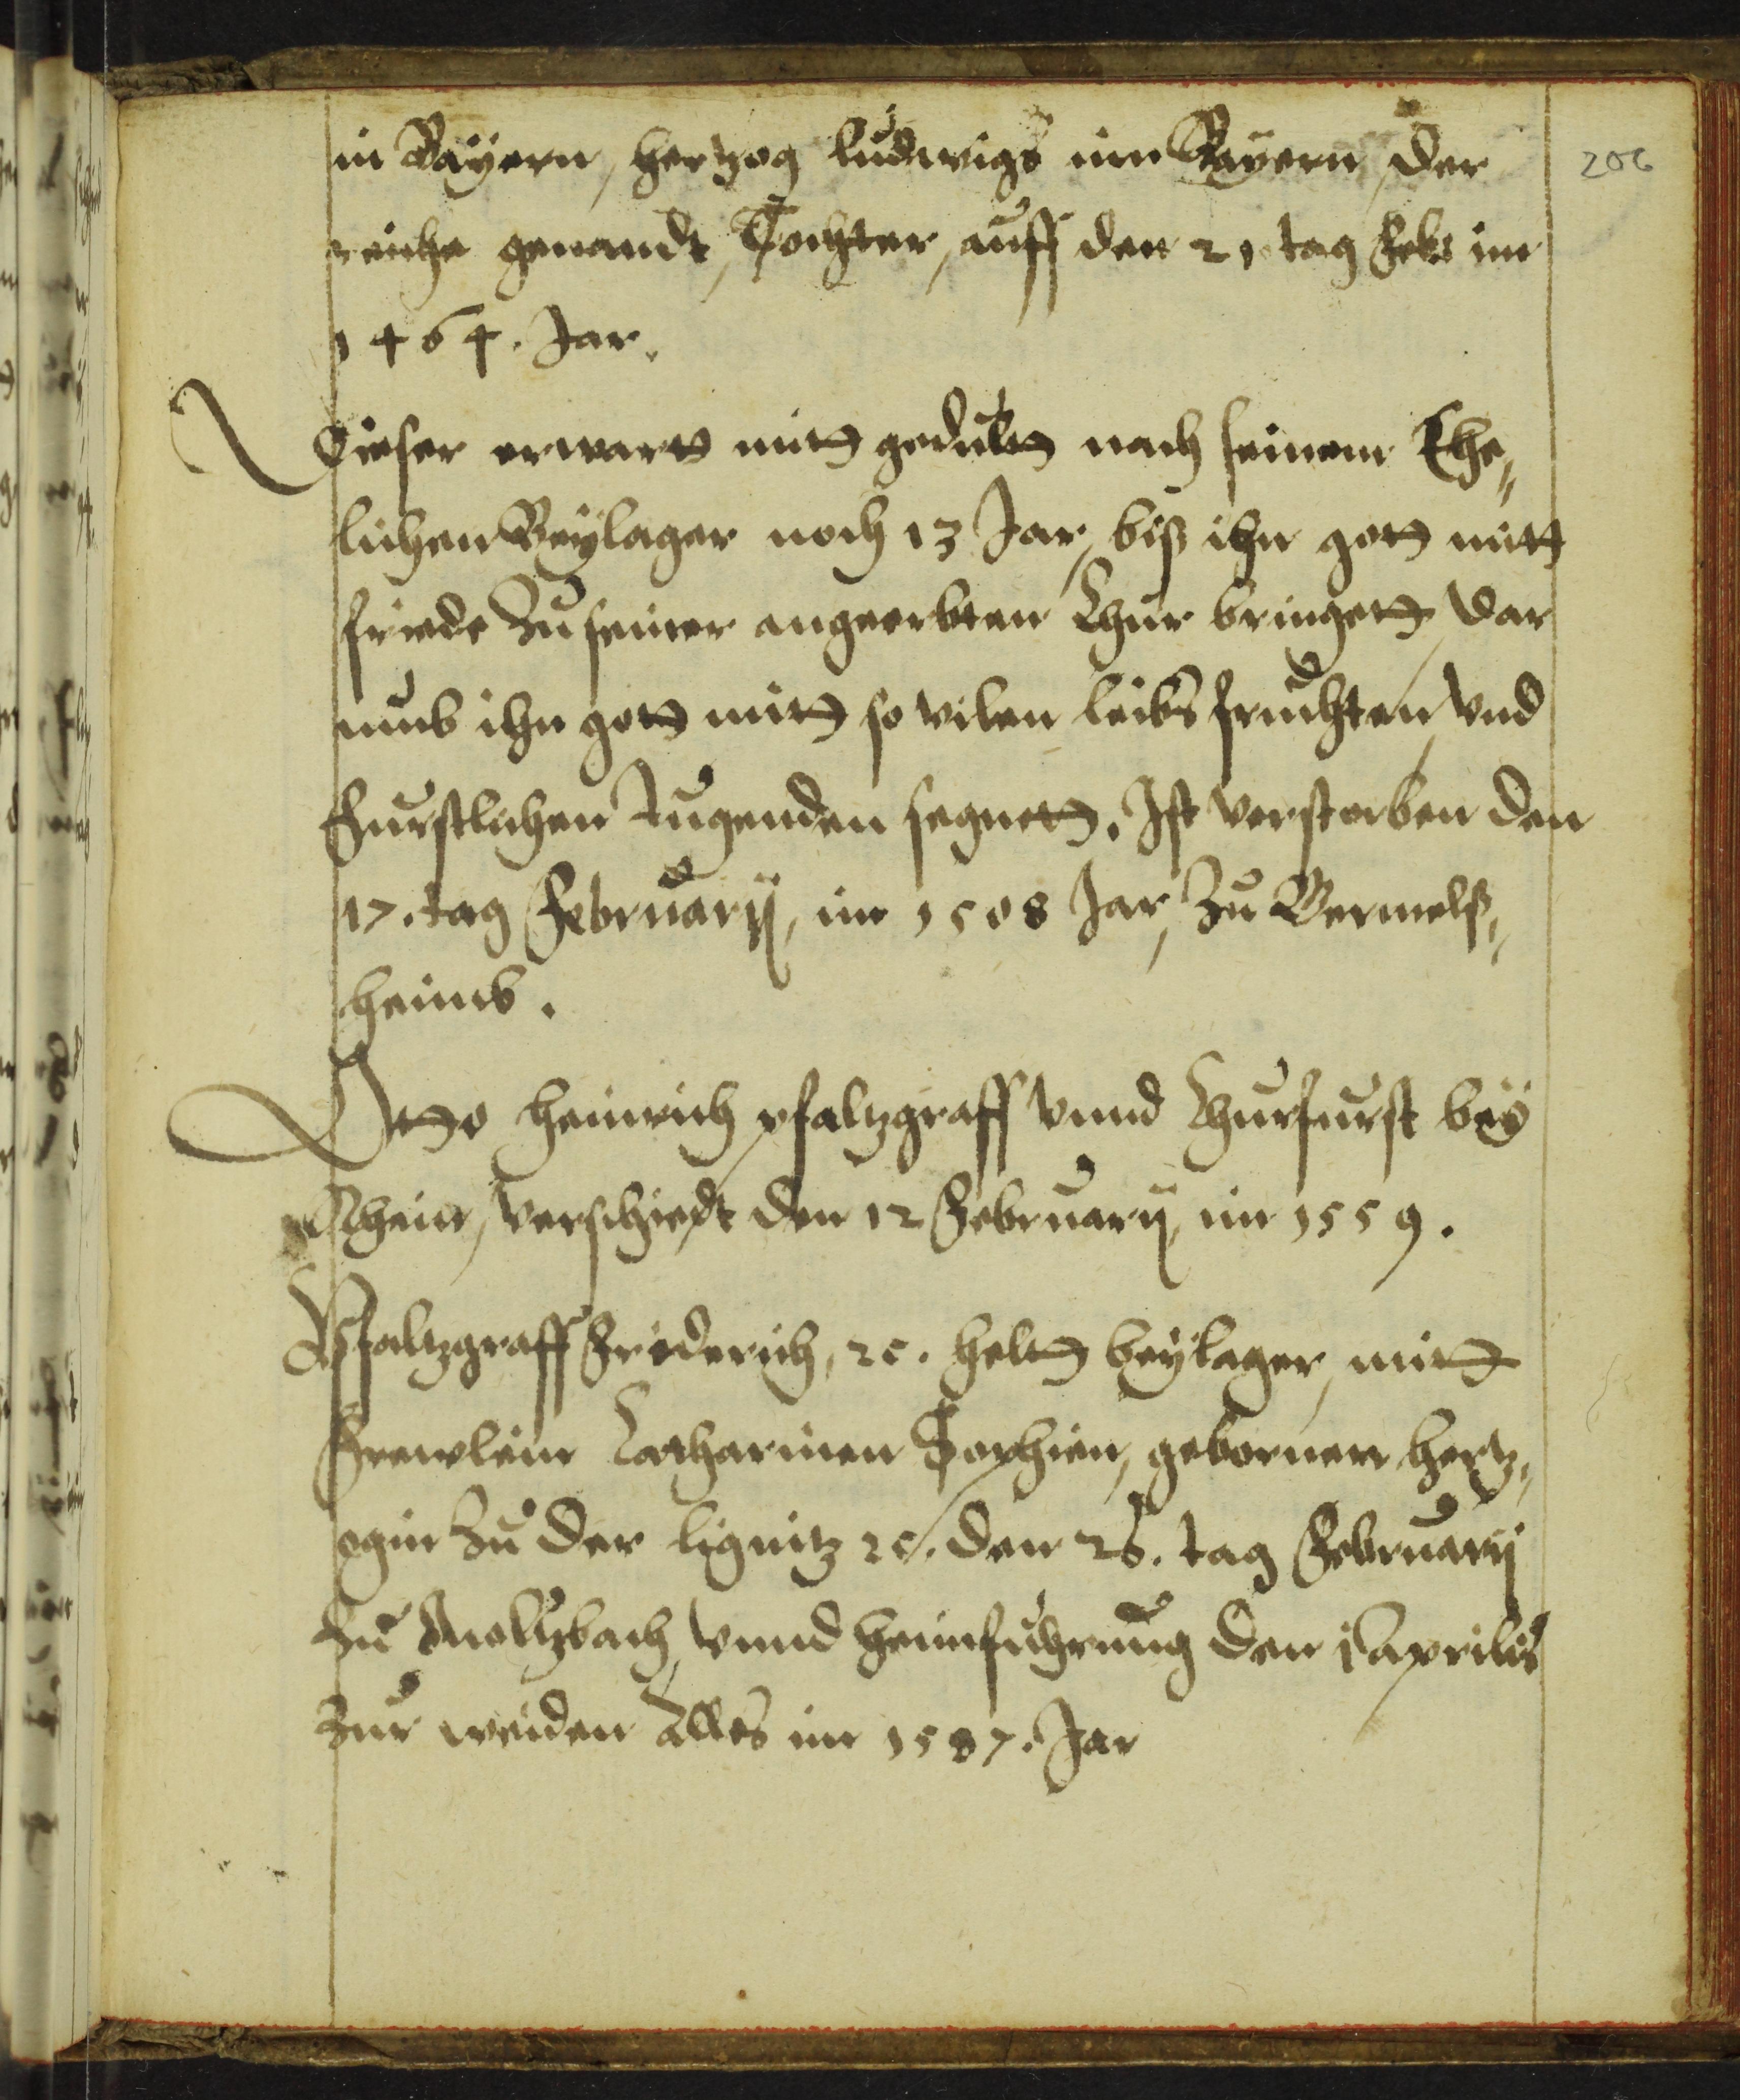 in Bayern, hertzog ludwigs inn Bayern, der
reiche genandt, Tochter, auff den 21 tag Feb: im
1464. Jar.
Dieser erwart mitt gedultt nach seinem Ehe„
lichen Beylager noch 13 Jar, biß ihn gott mitt
friede zu seiner angeerbten Chur bringett, dar
umb ihn gott mitt so vilen leibs fruchten, vnd
Furstlichen Tugenden segnett. Ist verstorben den
17. tag Februarij, im 1508 Jar, zu Germelß„
heimb.
Otto Heinrich pfaltzgraff vnnd Churfurst bey
Rhein, verschiedt den 12 Februarij, im 1559.
Pfaltzgraff Friderich, ꝛc. helt beylager, mitt
Frewlein Catharinen Sophien, gebornen hertz„
ogin zu der Lignitz ꝛc. den 26. tag Februarij
zu Aneltzbach, vnnd heimfuhrung den 1 Aprilis
zur weiden Alles im 1587. Jar
206